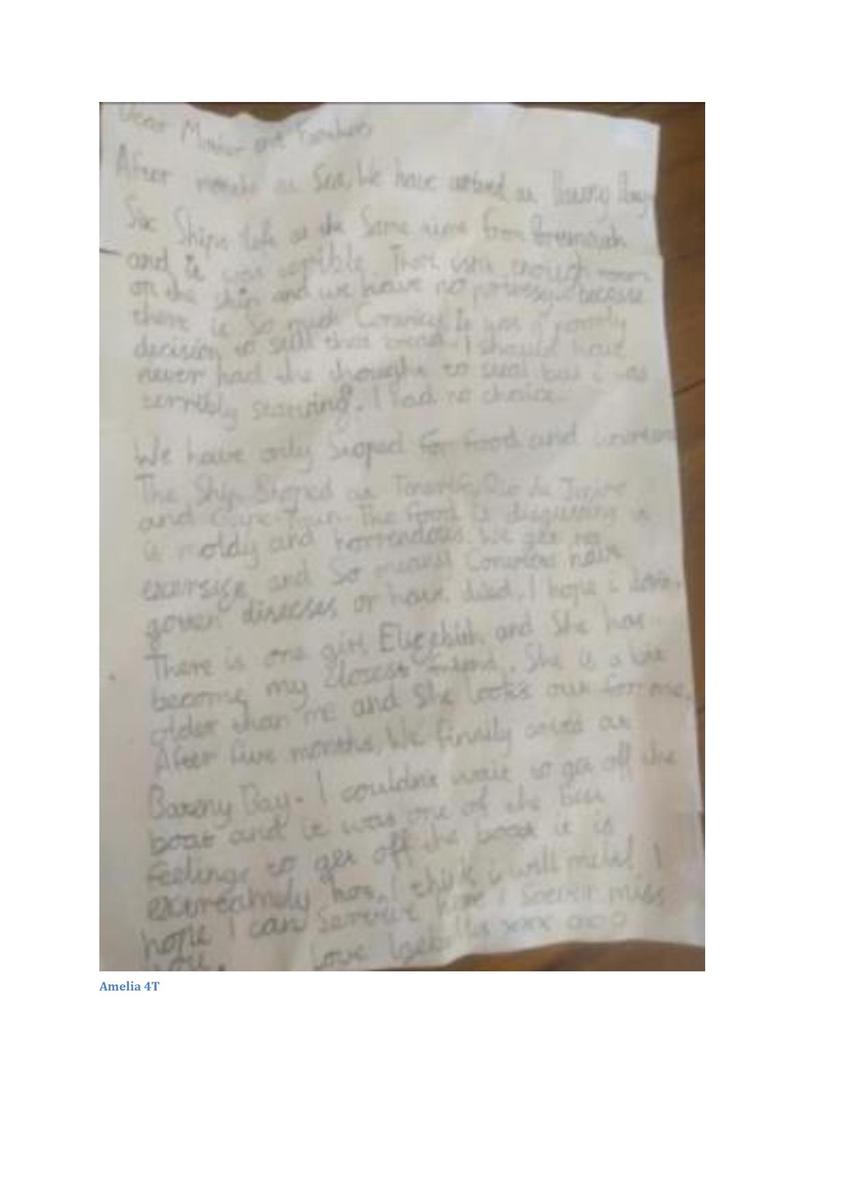 Dear Mother and Father
After months at Sea, We have arived at Bay
Six Ships left at the Same time from
and it was Terible. There isnt enough room
on the ship and we have no because
there is So much It was a
decision to that bread. I should have
never had the thought to steal but i was
terribly starving. I had no choice.
We have only Stoped for food and
The Ship Stoped at Rio de
and The food is disgusting it
is moldy and horrendous. We get no
exersise and So meany Convicts have
goten diseeses or have died. I hope i dont.
There is one girl and She has
become my Closest freind. She is a bit
older than me and She looks out for me.
After five months, We finaly arived at
Bay. I couldnt wait to get off the
boat and it was one of the best
feelings to get off the boat it is
extreamely hot, I think i will melt! I
hope I can here I miss
you. Love xxx ooo
Amelia 4T